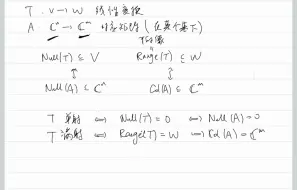 T : V → W 线性变换
A : ℂⁿ → ℂᵐ 对应矩阵 (在某个基下)
Null(T) ⊆ V Range(T) ⊆ W
↕ ↕
Null(A) ⊆ ℂⁿ Col(A) ⊆ ℂᵐ
T 单射 ⟺ Null(T) = 0 ⟺ Null(A) = 0
T 满射 ⟺ Range(T) = W ⟺ Col(A) = ℂᵐ